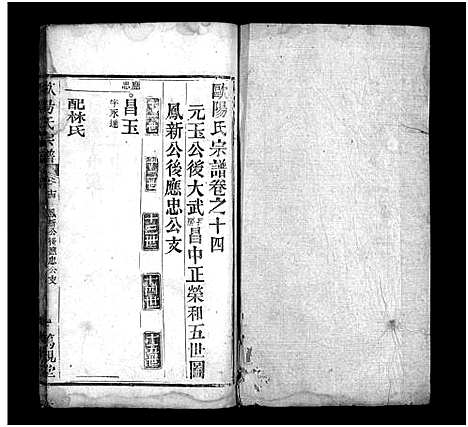 歐陽氏宗譜卷之十四
元玉公後大武昌中正榮和五世圖
鳳新公後應忠公支
十三世
十四世
十五世
應忠
昌玉
字永達
配林氏
歐陽氏宗譜
卷十四
鳳新公後應忠公支